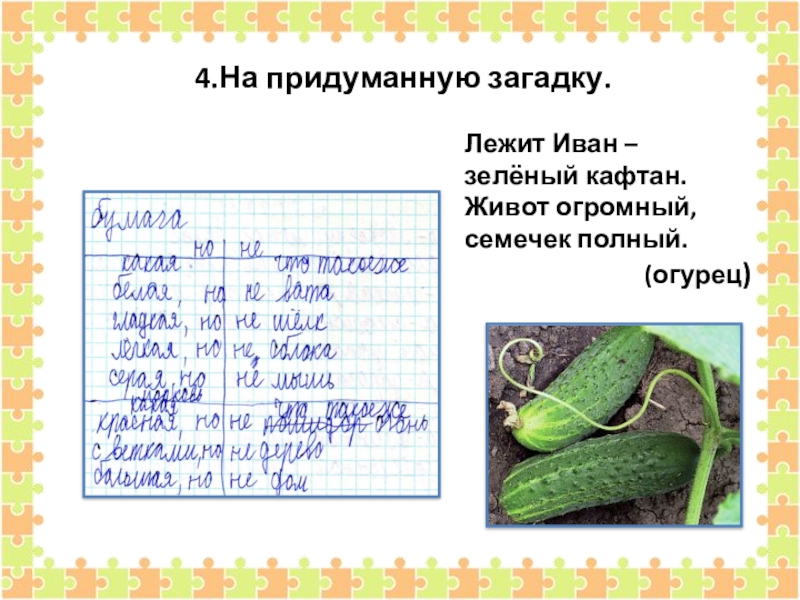 4.На придуманную загадку.
Лежит Иван –
зелёный кафтан.
Живот огромный,
семечек полный.
(огурец)
бумага
но не
какая что такое же
белая, но не вата
гладкая, но не шёлк
лёгкая, но не облака
серая, но не мышь
морковь
какая что такое же
красная, но не помидор огонь
с ветками, но не дерево
большая, но не дом